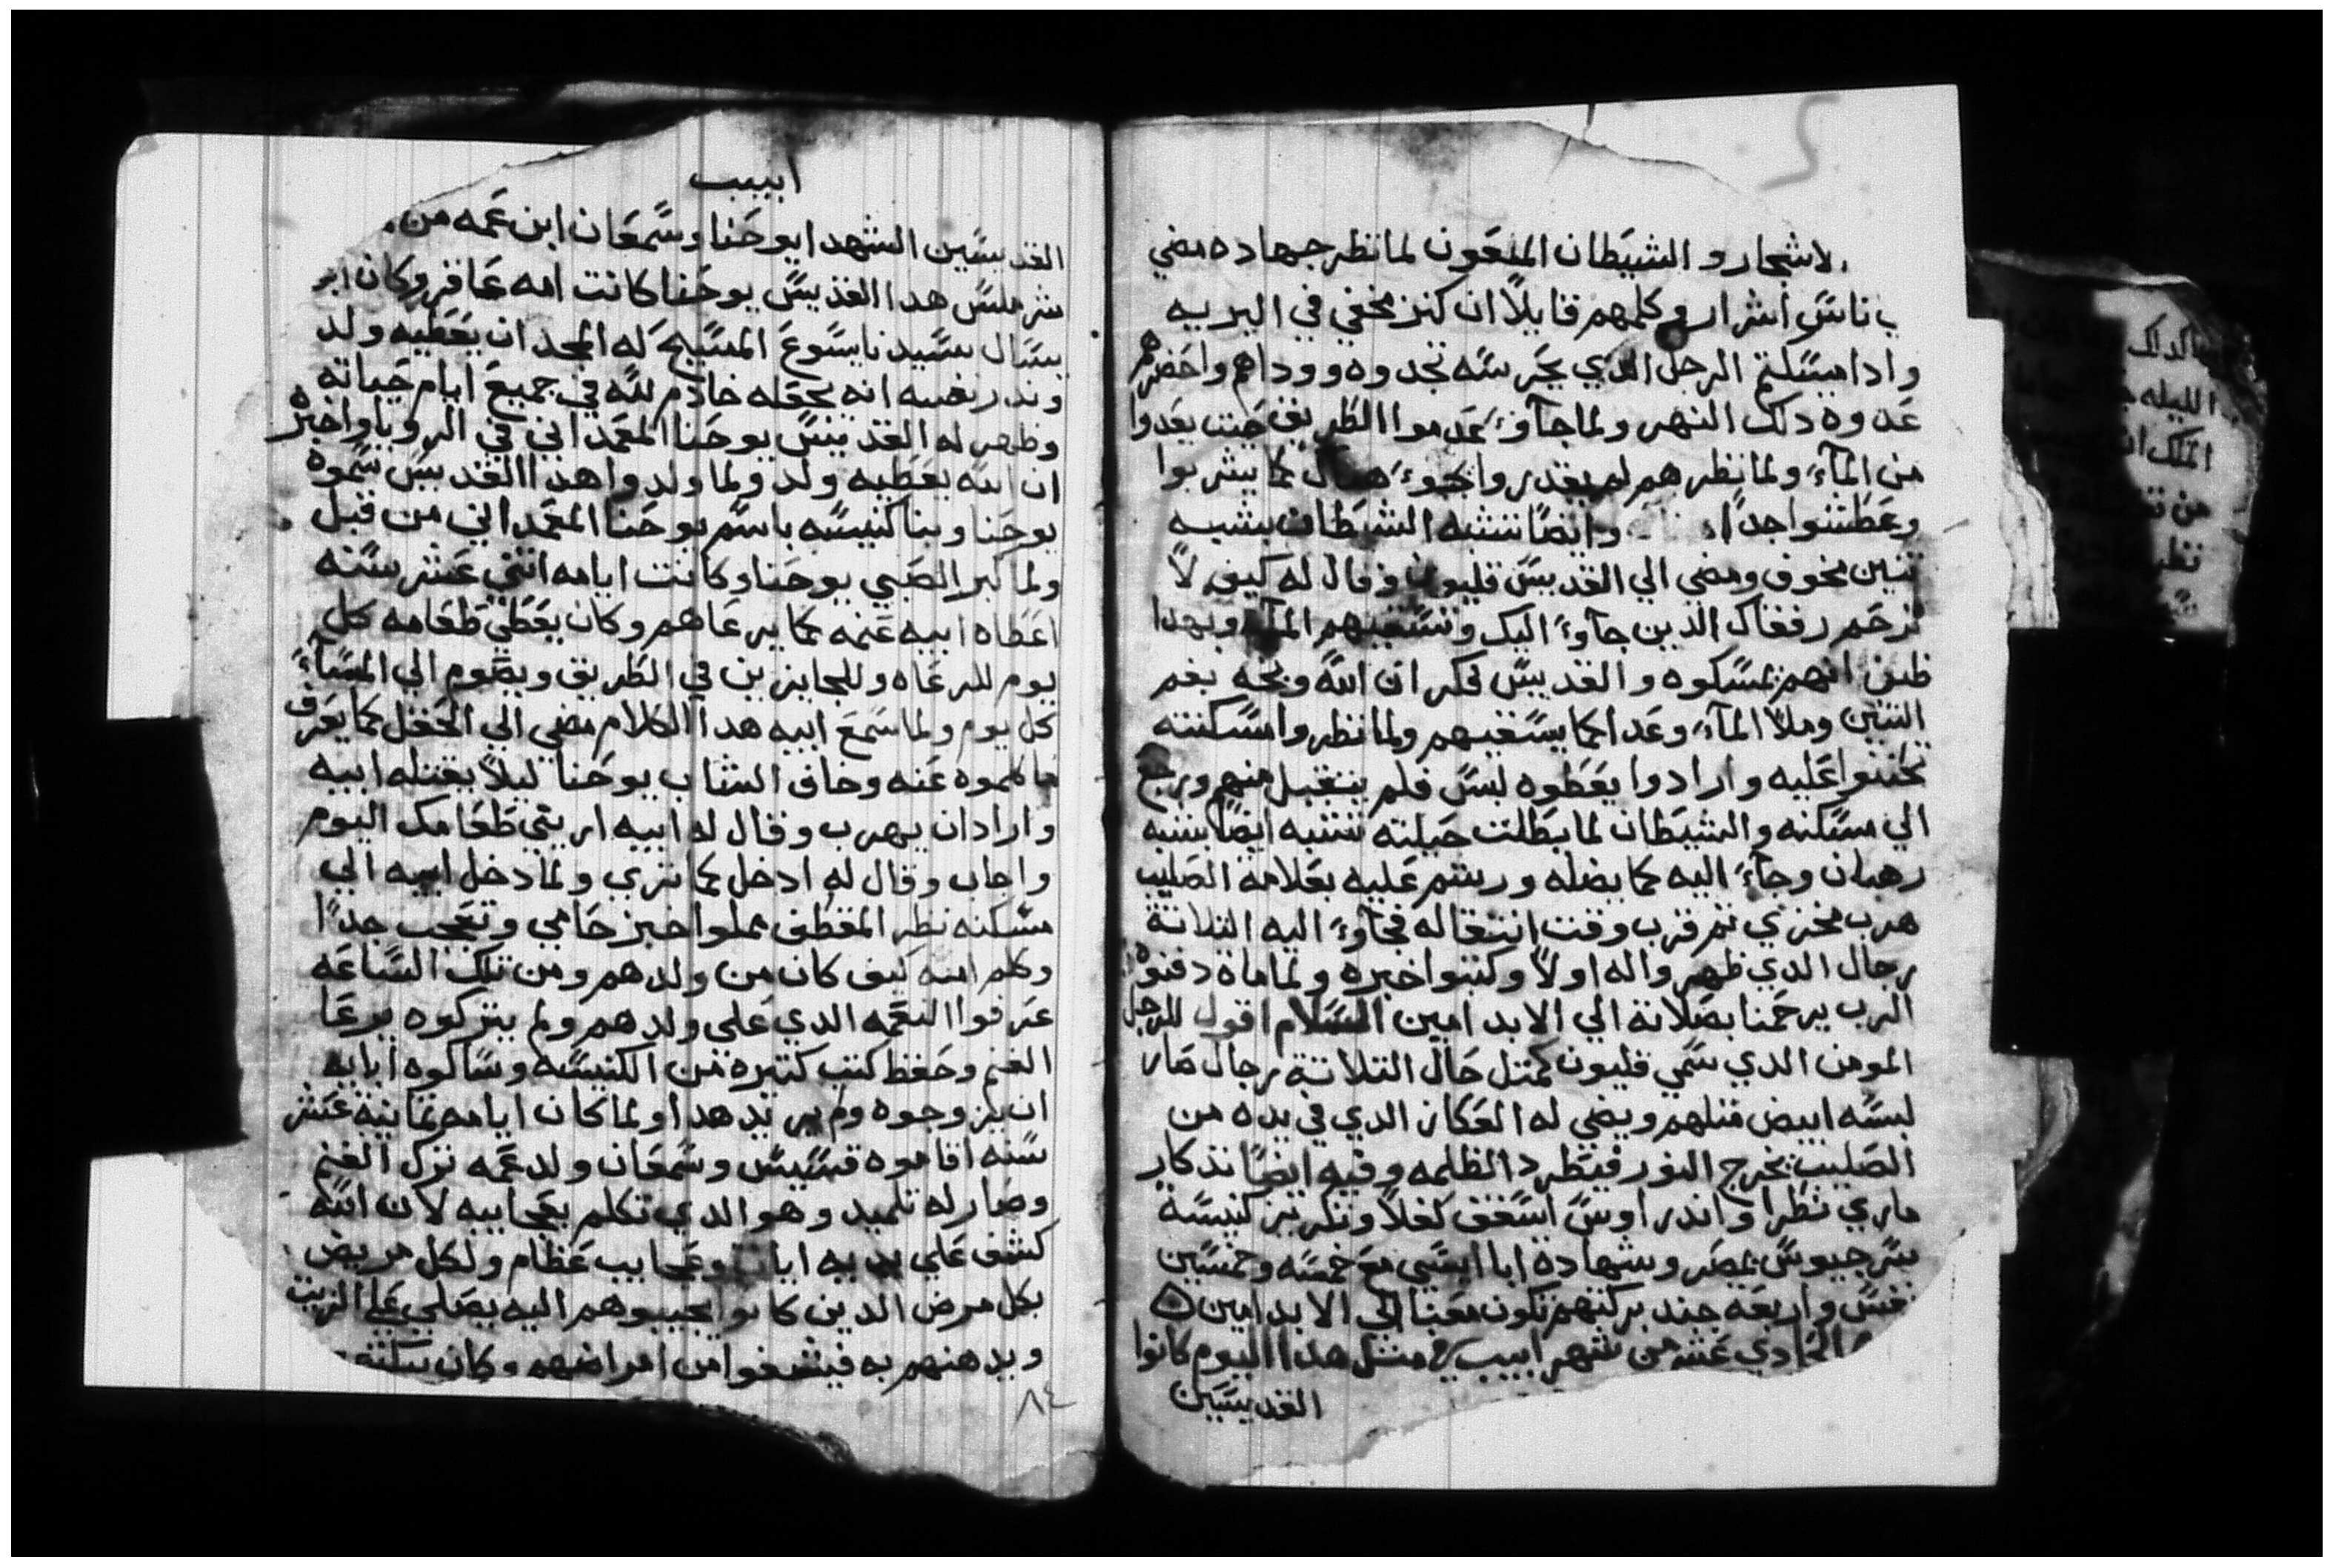 لاشجار و الشيطان الملعون لما نظر جهاده مضي
ب ناس اشرار وكلمهم قايلاً ان كنز مخفي في البريه
وادا مسكتم الرجل الدي يحرسه تجدوه ووداهم واحضرهم
عدوه دلك النهر ولما جآوءَ عدموا الطريق حتت بعدوا
من المآء ولما نظرهم لم يقدروا يجوءَ هناك كما يشربوا
وعطشوا جداً وايضاً تشبه الشيطان بشبه
تنين مخوف ومضي الي القديس قليون وقال له كيف لاً
ترحم رفقاك الدين جآوءَ اليك وتسقيهم المآء وبهدا
ظن انهم يمسكوه و القديس فكر ان الله وبخه بفم
التنين وملا المآءَ وعدا كما يسقيهم ولما نظروا مسكنته
تحننوا عليه وارادوا يعطوه لبس فلم يتقبل منهم ورجع
الي مسكنه والشيطان لما بطلت حيلته تشبه ايضاً بشبه
رهبان وجآءَ اليه كما يضله ورشم عليه بعلامة الصليب
هرب مخزي تم قرب وقت انتقاله فجآوءَ اليه التلاتة
رجال الدي ظهروا له اولاً وكتبوا خبره ولما ماة دفنوه
الرب يرحمنا بصلاتة الي الابد امين السلام اقول للرجل
المومن الدي سمي قليون كمتل حال التلاتة رجال صار
لبسه ابيض متلهم ويضي له العكاز الدي في يده من
الصليب يخرج النور فيطرد الظلمه وفيه ايضاً تدكار
ماري نطرا واندراوس اسقف لغلاً وتكريز كنيسة
سرجيوس بمصر وشهادة ابا ايسي مع خمسه وخمسين
نفس واربعه جند بركتهم تكون معنا الي الابد امين
الحادي عشر من شهر ابيب في متل هدا اليوم كانوا
القديسين
ابيب
القديسين الشهدا يوحنا وسمعان ابن عمه من
شرملس هدا القديس يوحنا كانت امه عاقر وكان ابو
يسال سيدنا يسوع المسيح له المجد ان يعطيه ولد
وندر نفسه انه يجعله خادم لله في جميع ايام حياته
وظهر له القديس يوحنا المعمداني في الرويا واخبره
ان الله يعطيه ولد ولما ولدوا هدا القديس سموه
يوحنا وبنا كنيسه باسم يوحنا المعمداني من قبل
ولما كبر الصبي يوحنا وكانت ايامه اتني عشر سنه
اعطاه ابيه غنمه كما يرعاهم وكان يعطي طعامه كل
يوم للرعاه وللجايزين في الطريق ويصوم الي المسآءَ
كل يوم ولما سمع ابيه هدا الكلام مضي الي الحقل كما يعرف
ما كلموه عنه وخاف الشاب يوحنا ليلاً يقتله ابيه
وارادان يهرب وقال له ابيه اريتي طعامك اليوم
واجاب وقال له ادخل كما تري ولما دخل ابيه الي
مسكنه نظر المقطف مملوا خبز حامي وتعجب جداً
وكلم امه كيف كان من ولدهم ومن تلك الساعه
عرفوا النعمه الدي علي ولدهم ولم يتركوه يرعا
الغنم وحفظ كتب كتيره من الكنيسه وسالوه ابايه
ان يزوجوه ولم يريد هدا ولما كان ايامه تمانية عشر
سنه اقاموه قسيس وسمعان ولد عمه ترك الغنم
وصار له تلميد وهو الدي تكلم بعجايبه لان الله
كشف علي يديه ايات وعجايب عظام ولكل مريض
بكل مرض الدين كانوا يجيبوهم اليه يصلي علي الزيت
ويدهنهم به فيشفوا من امراضهم وكان
٨٤